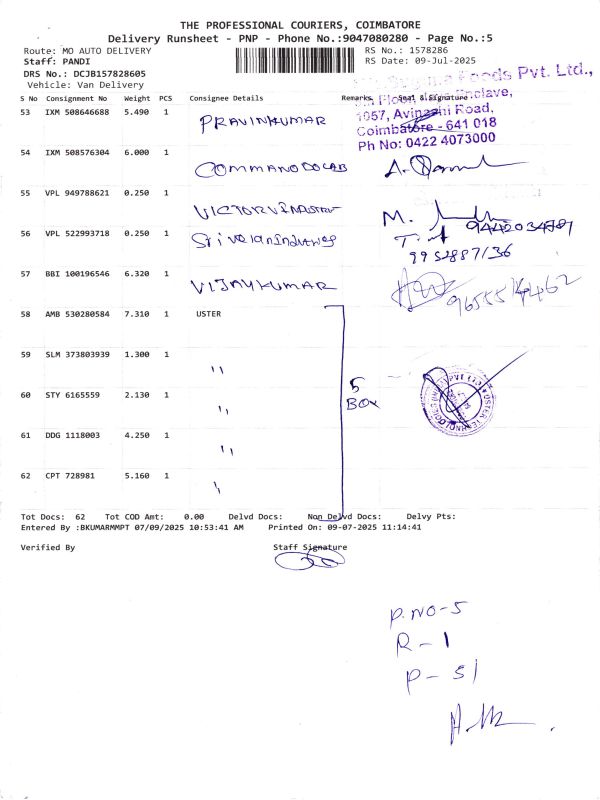 THE PROFESSIONAL COURIERS, COIMBATORE
Delivery Runsheet - PNP - Phone No.:9047080280 - Page No.:5
Route: MO AUTO DELIVERY
RS No.: 1578286
Staff: PANDI
RS Date: 09-Jul-2025
DRS No.: DCJB157828605
Vehicle: Van Delivery
Foods Pvt. Ltd.,
Enclave,
1057, Avinashi Road,
Coimbatore - 641 018
Ph No: 0422 4073000
S No Consignment No Weight PCS Consignee Details Remarks Seal & Signature
53 IXM 508646688 5.490 1 PRAVINKUMAR
54 IXM 508576304 6.000 1 COMMANDOLAB
55 VPL 949788621 0.250 1 VICTORVINDUSTRY
M.
56 VPL 522993718 0.250 1
9952887136
57 BBI 100196546 6.320 1 VIJAYKUMAR
58 AMB 530280584 7.310 1 USTER
59 SLM 373803939 1.300 1 "
60 STY 6165559 2.130 1 "
5
BOX
61 DDG 1118003 4.250 1 "
62 CPT 728981 5.160 1 "
Tot Docs: 62 Tot COD Amt: 0.00 Delvd Docs: Non Delvd Docs: Delvy Pts:
Entered By :BKUMARMMPT 07/09/2025 10:53:41 AM Printed On: 09-07-2025 11:14:41
Verified By Staff Signature
P.NO-5
R-1
P-51